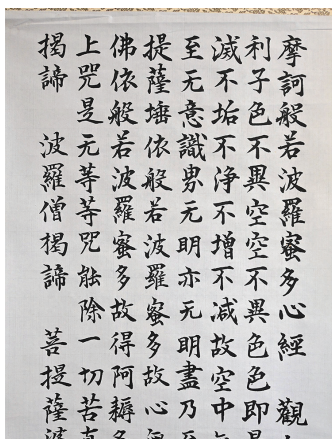 摩訶般若波羅蜜多心經 觀
利子色不異空空不異色色即
滅不垢不淨不增不減故空中
至无意識界无明亦无明盡乃
提薩埵依般若波羅蜜多故心
佛依般若波羅蜜多故得阿耨
上咒是无等等咒能除一切苦
揭諦 波羅僧揭諦 菩提薩婆